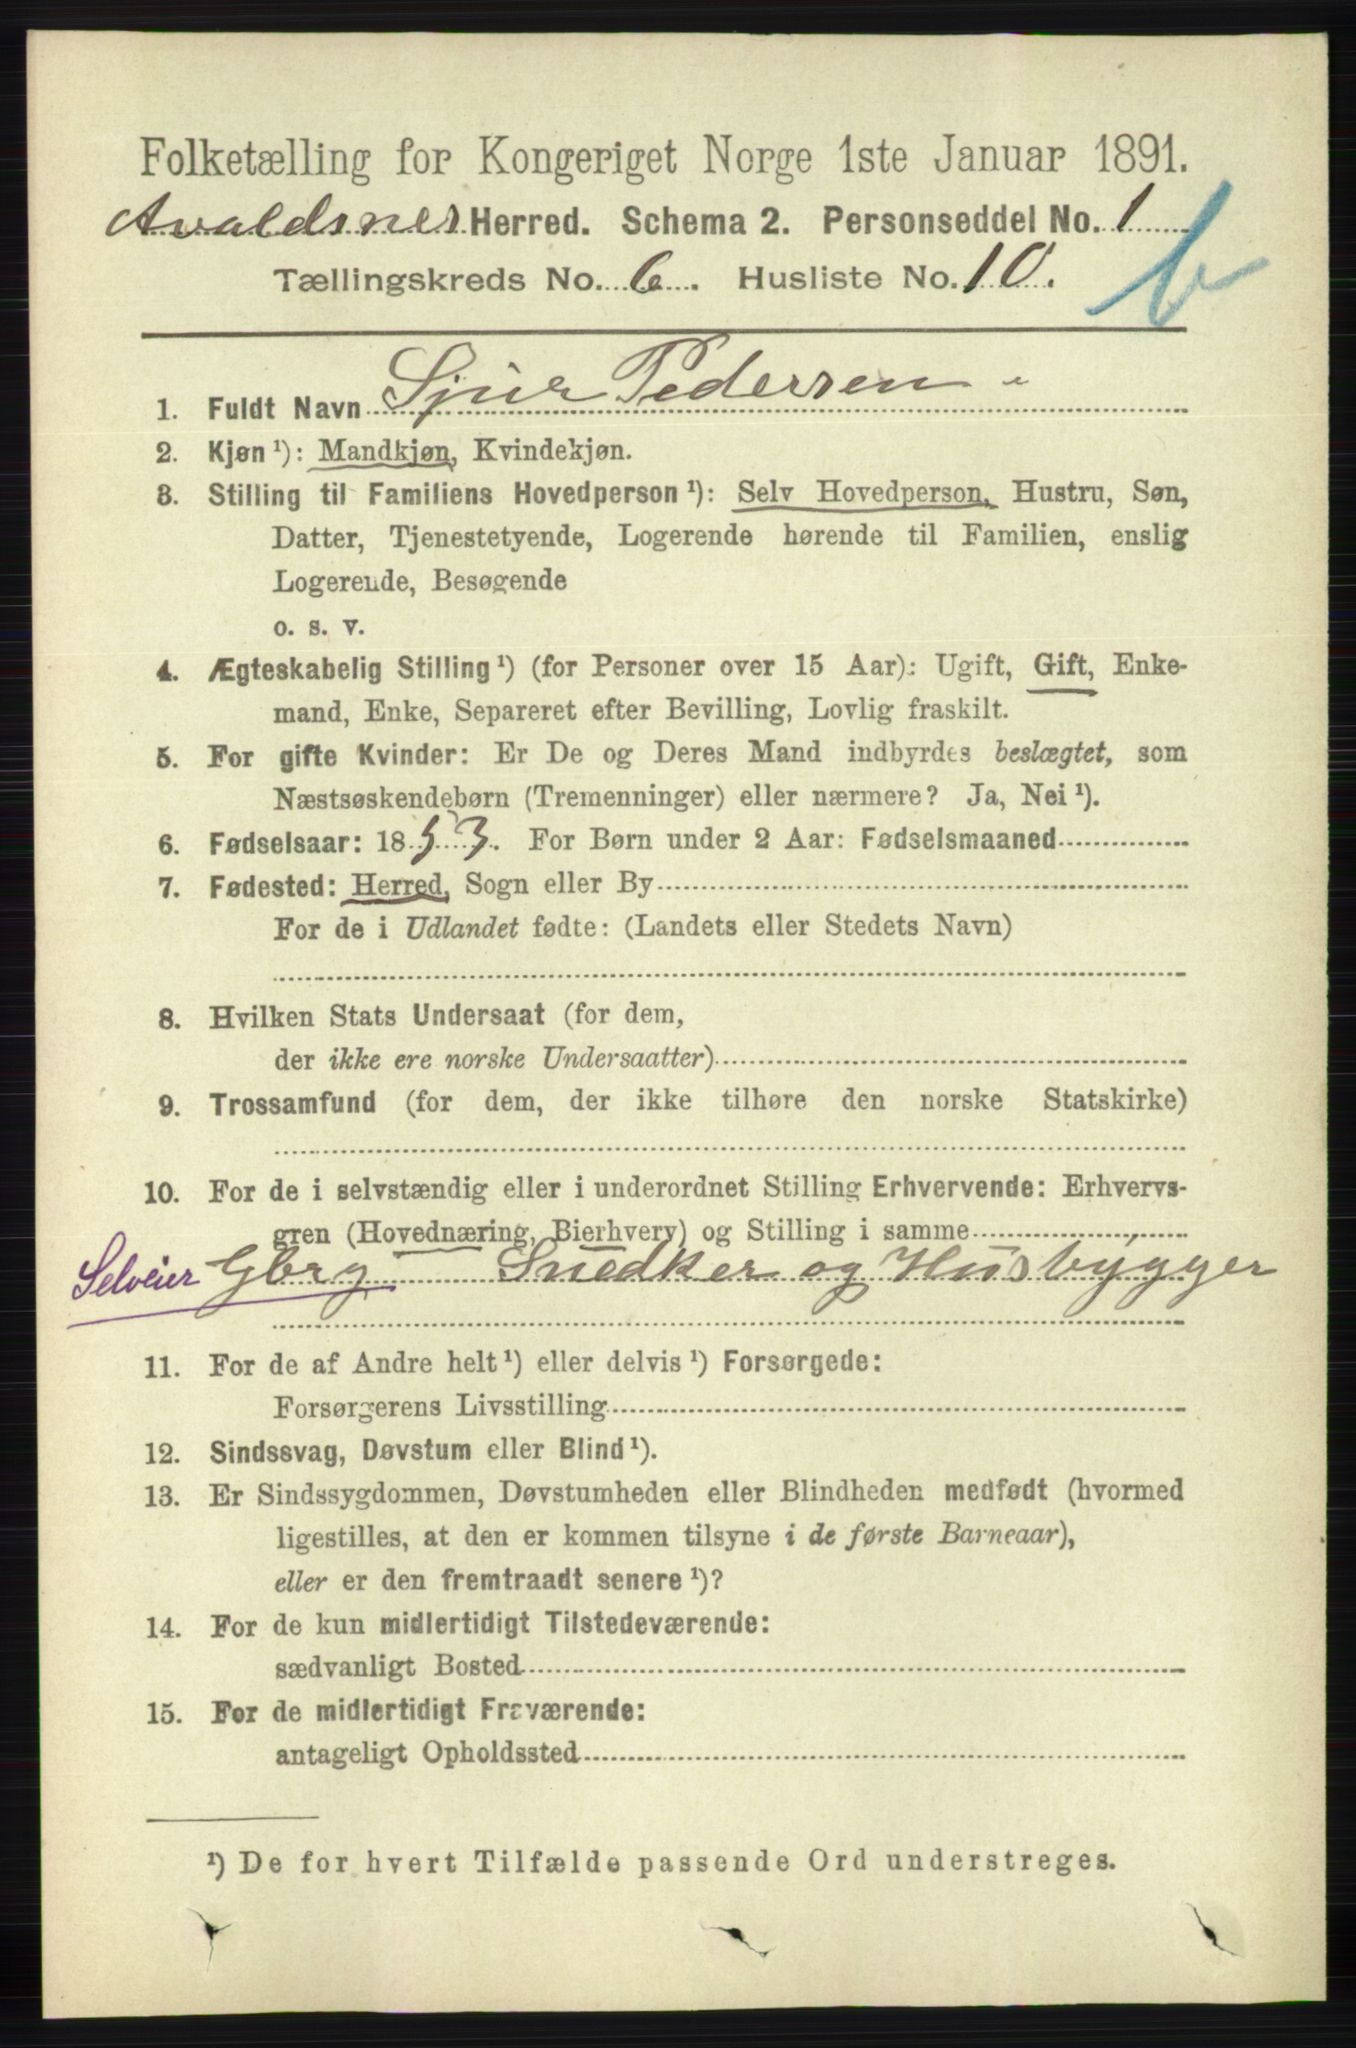 Folketælling for Kongeriget Norge 1ste Januar 1891.
Avaldsnes Herred. Schema 2. Personseddel No. 1
Tællingskreds No. 6. Husliste No. 10.
b
1. Fuldt Navn Sjur Pedersen
2. Kjøn ¹): Mandkjøn, Kvindekjøn.
3. Stilling til Familiens Hovedperson ¹): Selv Hovedperson, Hustru, Søn,
Datter, Tjenestetyende, Logerende hørende til Familien, enslig
Logerende, Besøgende
o. s. v.
4. Ægteskabelig Stilling ¹) (for Personer over 15 Aar): Ugift, Gift, Enke-
mand, Enke, Separeret efter Bevilling, Lovlig fraskilt.
5. For gifte Kvinder: Er De og Deres Mand indbyrdes beslægtet, som
Næstsøskendebørn (Tremenninger) eller nærmere? Ja, Nei ¹).
6. Fødselsaar: 1853. For Børn under 2 Aar: Fødselsmaaned
7. Fødested: Herred, Sogn eller By
For de i Udlandet fødte: (Landets eller Stedets Navn)
8. Hvilken Stats Undersaat (for dem,
der ikke ere norske Undersaatter)
9. Trossamfund (for dem, der ikke tilhøre den norske Statskirke)
10. For de i selvstændig eller i underordnet Stilling Erhvervende: Erhvervs-
gren (Hovednæring, Bierhverv) og Stilling i samme
Selveier Gbrg Snedker og Husbygger
11. For de af Andre helt ¹) eller delvis ¹) Forsørgede:
Forsørgerens Livsstilling
12. Sindssvag, Døvstum eller Blind ¹).
13. Er Sindssygdommen, Døvstumheden eller Blindheden medfødt (hvormed
ligestilles, at den er kommen tilsyne i de første Barneaar),
eller er den fremtraadt senere ¹)?
14. For de kun midlertidigt Tilstedeværende:
sædvanligt Bosted
15. For de midlertidigt Fraværende:
antageligt Opholdssted
¹) De for hvert Tilfælde passende Ord understreges.